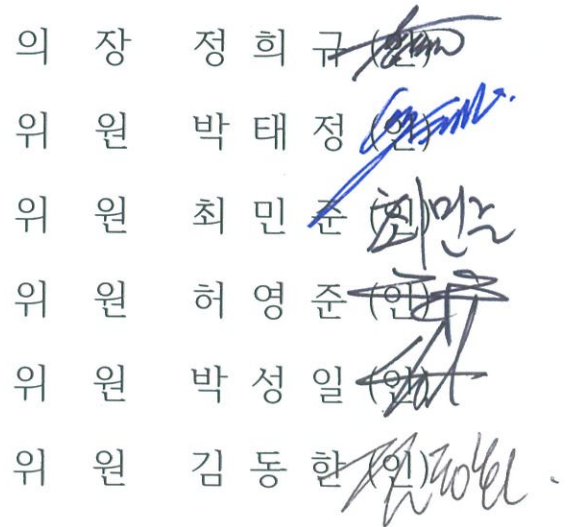 의 장 정 희 규 (인)
위 원 박 태 정 (인)
위 원 최 민 준 (인) 최민준
위 원 허 영 준 (인)
위 원 박 성 일 (인)
위 원 김 동 한 (인)